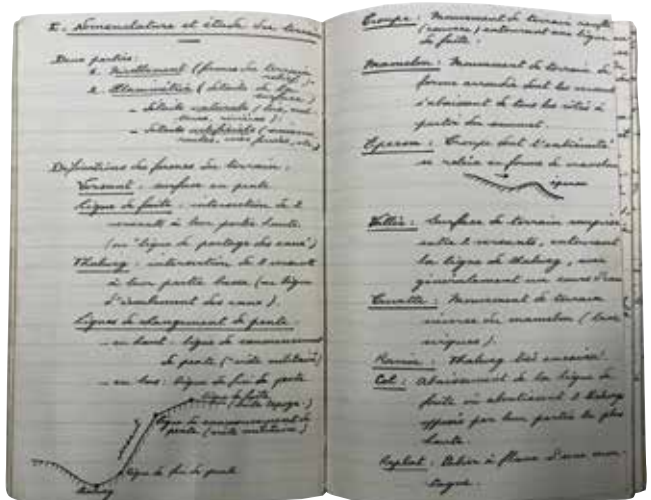 I. Nomenclature et étude du terrain
Deux parties:
1. Nivellement (formes du terrain, relief).
2. Planimétrie (détails de la surface)
- détails naturels (bois, cultures, rivières)
- détails artificiels (
routes, voies ferrées, etc.)
Définitions des formes du terrain.
Versant : surface en pente
Ligne de faîte : intersection de 2
versants à leur partie haute
(ou "ligne de partage des eaux")
Thalweg : intersection de 2 versants
à leur partie basse (ou ligne
d'écoulement des eaux).
Lignes de changement de pente.
- en haut : ligne de commencement
de pente ("crête militaire")
- en bas : ligne de fin de pente
ligne de faîte
(crête topogr.)
ligne de commencement de
pente (crête militaire)
ligne de fin de pente
thalweg
Croupe : Mouvement de terrain
entourant une ligne
de faîte.
Mamelon : Mouvement de terrain de
forme arrondie dont les versants
s'abaissent de tous les côtés à
partir du sommet.
Eperon : Croupe dont l'extrémité
se relève en forme de mamelon
éperon
Vallée : Surface de terrain comprise
entre 2 versants, entourant
la ligne de thalweg, avec
généralement un cours d'eau
Cuvette : Mouvement de terrain
inverse du mamelon (
).
Ravin : Thalweg très encaissé.
Col : Abaissement de la ligne de
faîte où aboutissent 2 thalwegs
opposés par leur partie la plus
haute.
Replat : Palier à flanc d'une mon-
tagne.